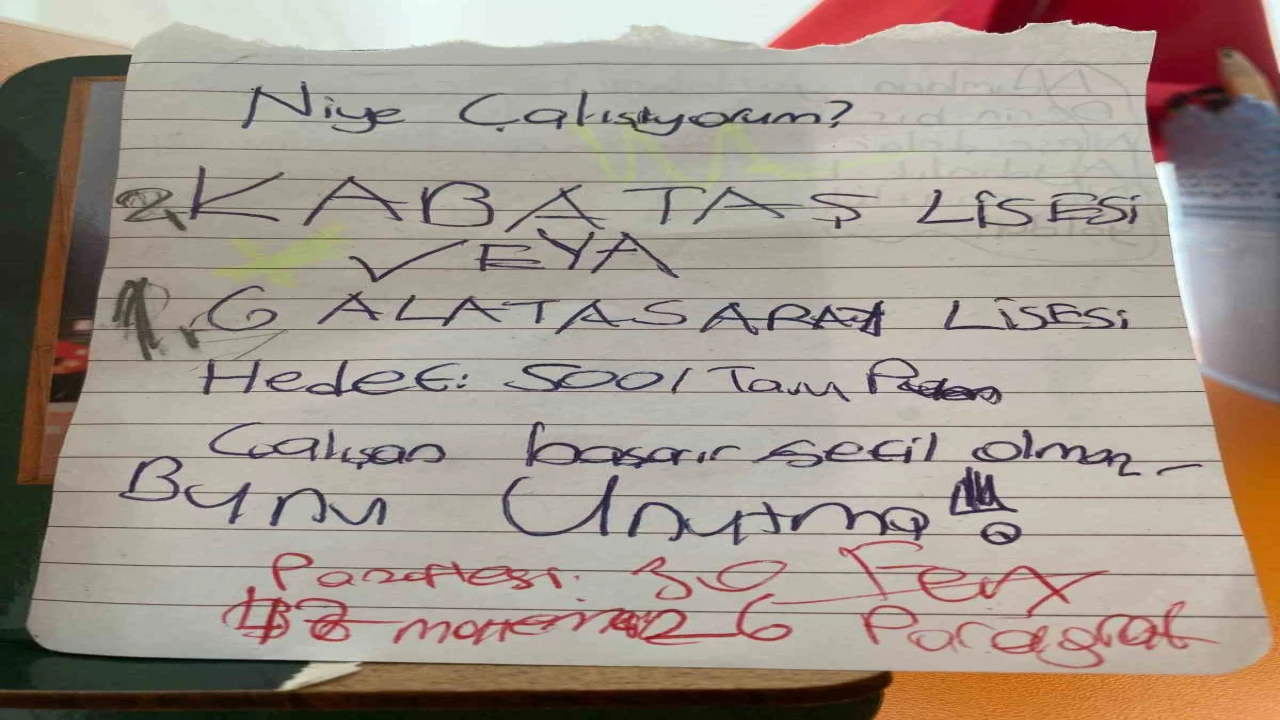 Niye Çalışıyorum?
2. KABATAŞ LİSESİ
VEYA
1. GALATASARAY LİSESİ
Hedef: 500/Tam
Çalışan başarır sefil olmaz
Bunu Unutma!
Pazartesi: 30 Fen
6 Paragraf